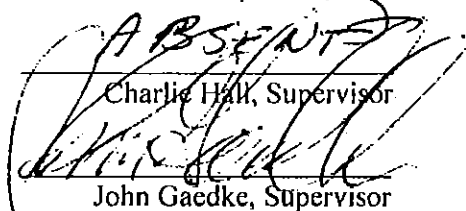 ABSENT
Charlie Hall, Supervisor
John Gaedke, Supervisor